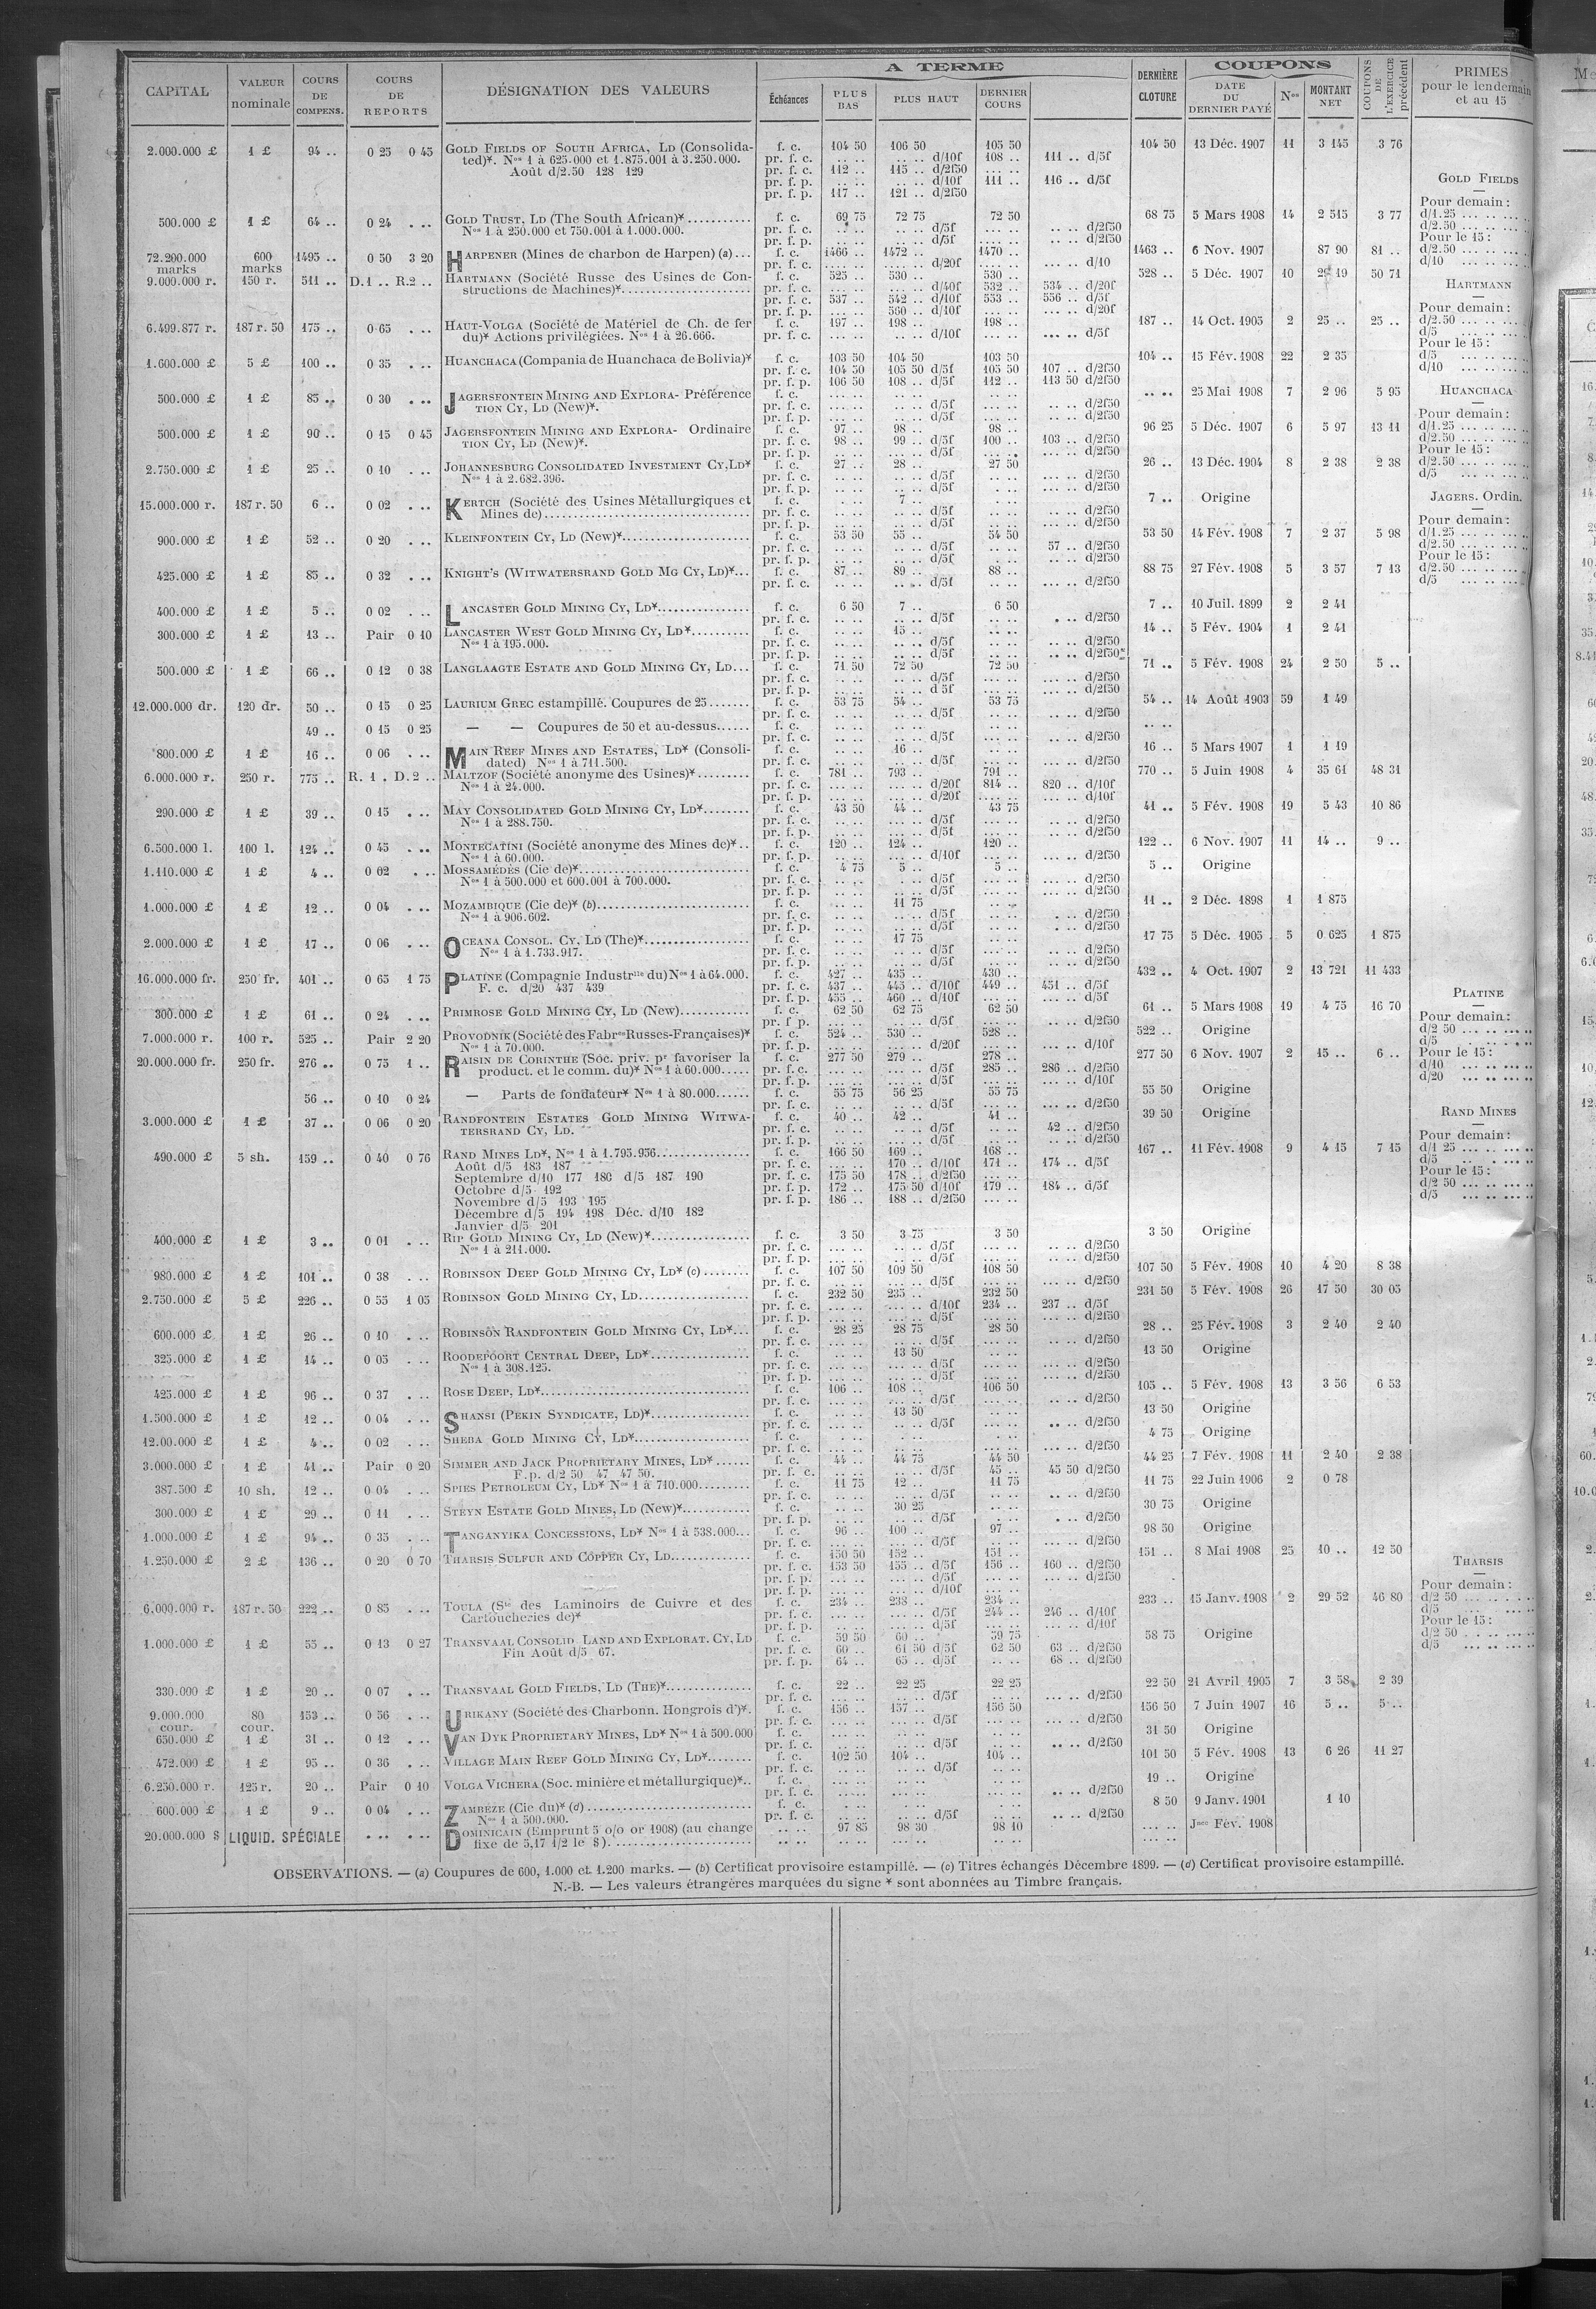 CAPITAL VALEUR nominale COURS DE COMPENS. COURS DE REPORTS DÉSIGNATION DES VALEURS A TERME Échéances PLUS BAS PLUS HAUT DERNIER COURS DERNIÈRE CLOTURE COUPONS DATE DU DERNIER PAYÉ Nos MONTANT NET COUPONS DE L'EXERCICE précédent PRIMES pour le lendemain et au 15
2.000.000 £ 1 £ 94 .. 0 25 0 45 GOLD FIELDS OF SOUTH AFRICA, LD (Consolida- f. c. 104 50 106 50 105 50 104 50 13 Déc. 1907 11 3 145 3 76
ted)*. Nos 1 à 625.000 et 1.875.001 à 3.250.000. pr. f. c. .. .. .. .. d/10f 108 .. 111 .. d/5f
Août d/2.50 128 129 pr. f. c. 112 .. 115 .. d/2f50 .. ..
pr. f. p. .. .. .. .. d/10f 111 .. 116 .. d/5f
pr. f. p. 117 .. 121 .. d/2f50
500.000 £ 1 £ 64 .. 0 24 . .. GOLD TRUST, LD (The South African)* f. c. 69 75 72 75 72 50 68 75 5 Mars 1908 14 2 515 3 77
Nos 1 à 250.000 et 750.001 à 1.000.000. pr. f. c. .. .. .. .. d/5f .. .. .. .. d/2f50
pr. f. p. .. .. .. .. d/5f .. .. .. .. d/2f50
72.200.000 marks 600 marks 1495 .. 0 50 3 20 HARPENER (Mines de charbon de Harpen) (a) f. c. 1466 .. 1472 .. 1470 .. 1463 .. 6 Nov. 1907 87 90 81 ..
pr. f. c. .. .. .. .. d/20f .. .. .. .. d/10
9.000.000 r. 150 r. 511 .. D.1 .. R.2 .. HARTMANN (Société Russe des Usines de Con- f. c. 525 .. 530 .. 530 .. 528 .. 5 Déc. 1907 10 50 71
structions de Machines)* pr. f. c. .. .. .. .. d/40f 532 .. 534 .. d/20f
pr. f. c. 537 .. 542 .. d/10f 553 .. 556 .. d/5f
pr. f. p. .. .. 560 .. d/10f .. .. .. .. d/20f
6.499.877 r. 187 r. 50 175 .. 0 65 . .. HAUT-VOLGA (Société de Matériel de Ch. de fer f. c. 197 .. 198 .. 198 .. 187 .. 14 Oct. 1905 2 25 .. 25 ..
du)* Actions privilégiées. Nos 1 à 26.666. pr. f. c. .. .. .. .. d/10f .. .. .. .. d/5f
1.600.000 £ 5 £ 100 .. 0 35 . .. HUANCHACA (Compania de Huanchaca de Bolivia)* f. c. 103 50 104 50 103 50 104 .. 15 Fév. 1908 22 2 35
pr. f. c. 104 50 105 50 d/5f 105 50 107 .. d/2f50
pr. f. p. 106 50 108 .. d/5f 112 .. 113 50 d/2f50
500.000 £ 1 £ 85 .. 0 30 . .. JAGERSFONTEIN MINING AND EXPLORA- Préférence f. c. .. .. .. .. 25 Mai 1908 7 2 96 5 95
TION CY, LD (New)*. pr. f. c. .. .. d/5f .. .. d/2f50
pr. f. p. .. .. d/5f .. .. d/2f50
500.000 £ 1 £ 90 .. 0 15 0 45 JAGERSFONTEIN MINING AND EXPLORA- Ordinaire f. c. 97 .. 98 .. 98 .. 96 25 5 Déc. 1907 6 5 97 13 11
TION CY, LD (New)*. pr. f. c. 98 .. 99 .. d/5f 100 .. 103 .. d/2f50
pr. f. p. .. .. d/5f .. .. d/2f50
2.750.000 £ 1 £ 25 .. 0 10 . .. JOHANNESBURG CONSOLIDATED INVESTMENT CY, LD* f. c. 27 .. 28 .. 27 50 26 .. 13 Déc. 1904 8 2 38 2 38
Nos 1 à 2.682.395. pr. f. c. .. .. d/5f .. .. d/2f50
pr. f. p. .. .. d/5f .. .. d/2f50
15.000.000 r. 187 r. 50 6 .. 0 02 . .. KERTCH (Société des Usines Métallurgiques et f. c. .. .. 7 .. .. .. 7 .. Origine
Mines de) pr. f. c. .. .. d/5f .. .. d/2f50
pr. f. p. .. .. d/5f .. .. d/2f50
900.000 £ 1 £ 52 .. 0 20 . .. KLEINFONTEIN CY, LD (New)* f. c. 53 50 55 .. 54 50 53 50 14 Fév. 1908 7 2 37 5 98
pr. f. c. .. .. d/5f .. .. 57 .. d/2f50
pr. f. p. .. .. d/5f .. .. d/2f50
425.000 £ 1 £ 85 .. 0 32 . .. KNIGHT'S (WITWATERSRAND GOLD MG CY, LD)* f. c. 87 .. 89 .. 88 .. 88 75 27 Fév. 1908 5 3 57 7 13
pr. f. c. .. .. d/5f .. .. d/2f50
400.000 £ 1 £ 5 .. 0 02 . .. LANCASTER GOLD MINING CY, LD* f. c. 6 50 7 .. 6 50 7 .. 10 Juil. 1899 2 2 41
pr. f. c. .. .. d/5f .. .. d/2f50
300.000 £ 1 £ 13 .. Pair 0 10 LANCASTER WEST GOLD MINING CY, LD* f. c. .. .. 15 .. .. .. 14 .. 5 Fév. 1904 1 2 41
Nos 1 à 195.000. pr. f. c. .. .. d/5f .. .. d/2f50
pr. f. p. .. .. d/5f .. .. d/2f50
500.000 £ 1 £ 66 .. 0 12 0 38 LANGLAAGTE ESTATE AND GOLD MINING CY, LD f. c. 71 50 72 50 72 50 71 .. 5 Fév. 1908 24 2 50 5 ..
pr. f. c. .. .. d/5f .. .. d/2f50
pr. f. p. .. .. d 5f .. .. d/2f50
12.000.000 dr. 120 dr. 50 .. 0 15 0 25 LAURIUM GREC estampillé. Coupures de 25 f. c. 53 75 54 .. 53 75 54 .. 14 Août 1903 59 1 49
pr. f. c. .. .. d/5f .. .. d/2f50
49 .. 0 15 0 25 — — Coupures de 50 et au-dessus f. c. .. .. .. ..
pr. f. c. .. .. d/5f .. .. d/2f50
800.000 £ 1 £ 16 .. 0 06 . .. MAIN REEF MINES AND ESTATES, LD* (Consoli- f. c. .. .. 16 .. .. .. 16 .. 5 Mars 1907 1 1 19
dated) Nos 1 à 711.500. pr. f. c. .. .. d/5f .. .. d/2f50
6.000.000 r. 250 r. 775 .. R. 1 . D. 2 .. MALTZOF (Société anonyme des Usines)* f. c. 781 .. 793 .. 791 .. 770 .. 5 Juin 1908 4 35 61 48 31
Nos 1 à 24.000. pr. f. c. .. .. d/20f 814 .. 820 .. d/10f
pr. f. p. .. .. d/20f .. .. d/10f
290.000 £ 1 £ 39 .. 0 15 . .. MAY CONSOLIDATED GOLD MINING CY, LD* f. c. 43 50 44 .. 43 75 41 .. 5 Fév. 1908 19 5 43 10 86
Nos 1 à 288.750. pr. f. c. .. .. d/5f .. .. d/2f50
pr. f. p. .. .. d/5f .. .. d/2f50
6.500.000 l. 100 l. 124 .. 0 45 . .. MONTECATINI (Société anonyme des Mines de)* f. c. 120 .. 124 .. 120 .. 122 .. 6 Nov. 1907 11 14 .. 9 ..
Nos 1 à 60.000. pr. f. p. .. .. d/10f .. .. d/2f50
1.110.000 £ 1 £ 4 .. 0 02 . .. MOSSAMÉDÈS (Cie de)* f. c. 4 75 5 .. 5 .. 5 .. Origine
Nos 1 à 500.000 et 600.001 à 700.000. pr. f. c. .. .. d/5f .. .. d/2f50
pr. f. p. .. .. d/5f .. .. d/2f50
1.000.000 £ 1 £ 12 .. 0 04 . .. MOZAMBIQUE (Cie de)* (b) f. c. .. .. 11 75 .. .. 11 .. 2 Déc. 1898 1 1 875
Nos 1 à 906.602. pr. f. c. .. .. d/5f .. .. d/2f50
pr. f. p. .. .. d/5f .. .. d/2f50
2.000.000 £ 1 £ 17 .. 0 06 . .. OCEANA CONSOL. CY, LD (The)* f. c. .. .. 17 75 .. .. 17 75 5 Déc. 1905 5 0 625 1 875
Nos 1 à 1.733.917. pr. f. c. .. .. d/5f .. .. d/2f50
pr. f. p. .. .. d/5f .. .. d/2f50
16.000.000 fr. 250 fr. 401 .. 0 65 1 75 PLATINE (Compagnie Industrlle du) Nos 1 à 64.000. f. c. 427 .. 435 .. 430 .. 432 .. 4 Oct. 1907 2 13 721 11 433
F. c. d/20 437 439 pr. f. c. 437 .. 445 .. d/10f 449 .. 451 .. d/5f
pr. f. p. 455 .. 460 .. d/10f .. .. .. .. d/5f
300.000 £ 1 £ 61 .. 0 24 . .. PRIMROSE GOLD MINING CY, LD (New) f. c. 62 50 62 75 62 50 61 .. 5 Mars 1908 19 4 75 16 70
pr. f p. .. .. d/5f .. .. d/2f50
7.000.000 r. 100 r. 525 .. Pair 2 20 PROVODNIK (Société des Fabres Russes-Françaises)* f. c. 524 .. 530 .. 528 .. 522 .. Origine
Nos 1 à 70.000. pr. f. p. .. .. d/20f .. .. d/10f
20.000.000 fr. 250 fr. 276 .. 0 75 1 .. RAISIN DE CORINTHE (Soc. priv. pr favoriser la f. c. 277 50 279 .. 278 .. 277 50 6 Nov. 1907 2 15 .. 6 ..
product. et le comm. du)* Nos 1 à 60.000 pr. f. c. .. .. d/5f 285 .. 286 .. d/2f50
pr. f. p. .. .. d/5f .. .. d/10f
56 .. 0 10 0 24 — Parts de fondateur* Nos 1 à 80.000 f. c. 55 75 56 25 55 75 55 50 Origine
pr. f. c. .. .. d/5f .. .. d/2f50
3.000.000 £ 1 £ 37 .. 0 06 0 20 RANDFONTEIN ESTATES GOLD MINING WITWA- f. c. 40 .. 42 .. 41 .. 39 50 Origine
TERSRAND CY, LD. pr. f. c. .. .. d/5f .. .. 42 .. d/2f50
pr. f. p. .. .. d/5f .. .. d/2f50
490.000 £ 5 sh. 159 .. 0 40 0 76 RAND MINES LD*, Nos 1 à 1.795.956 f. c. 166 50 169 .. 168 .. 167 .. 11 Fév. 1908 9 4 15 7 15
Août d/5 183 187 pr. f. c. .. .. 170 .. d/10f 171 .. 174 .. d/5f
Septembre d/10 177 180 d/5 187 190 pr. f. c. 175 50 178 .. d/2f50 .. ..
Octobre d/5 192 pr. f. p. 172 .. 175 50 d/10f 179 .. 184 .. d/5f
Novembre d/5 193 195 pr. f. p. 186 .. 188 .. d/2f50 .. ..
Décembre d/5 194 198 Déc. d/10 182
Janvier d/5 201
400.000 £ 1 £ 3 .. 0 01 . .. RIP GOLD MINING CY, LD (New)* f. c. 3 50 3 75 3 50 3 50 Origine
Nos 1 à 211.000. pr. f. c. .. .. d/5f .. .. d/2f50
pr. f. p. .. .. d/5f .. .. d/2f50
980.000 £ 1 £ 101 .. 0 38 . .. ROBINSON DEEP GOLD MINING CY, LD* (c) f. c. 107 50 109 50 108 50 107 50 5 Fév. 1908 10 4 20 8 38
pr. f. c. .. .. d/5f .. .. d/2f50
2.750.000 £ 5 £ 226 .. 0 55 1 05 ROBINSON GOLD MINING CY, LD f. c. 232 50 235 .. 232 50 231 50 5 Fév. 1908 26 17 50 30 05
pr. f. c. .. .. d/10f 234 .. 237 .. d/5f
pr. f. p. .. .. d/5f .. .. d/2f50
600.000 £ 1 £ 26 .. 0 10 . .. ROBINSON RANDFONTEIN GOLD MINING CY, LD* f. c. 28 25 28 75 28 50 28 .. 25 Fév. 1908 3 2 40 2 40
pr. f. c. .. .. d/5f .. .. d/2f50
325.000 £ 1 £ 14 .. 0 05 . .. ROODEPOORT CENTRAL DEEP, LD* f. c. .. .. 13 50 .. .. 13 50 Origine
Nos 1 à 308.125. pr. f. c. .. .. d/5f .. .. d/2f50
pr. f. p. .. .. d/5f .. .. d/2f50
425.000 £ 1 £ 96 .. 0 37 . .. ROSE DEEP, LD* f. c. 106 .. 108 .. 106 50 105 .. 5 Fév. 1908 13 3 56 6 53
pr. f. c. .. .. d/5f .. .. d/2f50
1.500.000 £ 1 £ 12 .. 0 04 . .. SHANSI (PEKIN SYNDICATE, LD)* f. c. .. .. 13 50 .. .. 13 50 Origine
pr. f. c. .. .. d/5f .. .. d/2f50
12.00.000 £ 1 £ 4 .. 0 02 . .. SHEBA GOLD MINING CY, LD* f. c. .. .. .. .. 4 75 Origine
pr. f. c. .. .. .. .. d/2f50
3.000.000 £ 1 £ 41 .. Pair 0 20 SIMMER AND JACK PROPRIETARY MINES, LD* f. c. 44 .. 44 75 44 50 44 25 7 Fév. 1908 11 2 40 2 38
F. p. d/2 50 47 47 50. pr. f. c. .. .. d/5f 45 .. 45 50 d/2f50
387.500 £ 10 sh. 12 .. 0 04 . .. SPIES PETROLEUM CY, LD* Nos 1 à 710.000 f. c. 11 75 12 .. 11 75 11 75 22 Juin 1906 2 0 78
pr. f. c. .. .. d/5f .. .. d/2f50
300.000 £ 1 £ 29 .. 0 11 . .. STEYN ESTATE GOLD MINES, LD (New)* f. c. .. .. 30 25 .. .. 30 75 Origine
pr. f. p. .. .. d/5f .. .. d/2f50
1.000.000 £ 1 £ 94 .. 0 35 . .. TANGANYIKA CONCESSIONS, LD* Nos 1 à 538.000 f. c. 96 .. 100 .. 97 .. 98 50 Origine
pr. f. c. .. .. d/5f .. .. d/2f50
1.250.000 £ 2 £ 136 .. 0 20 0 70 THARSIS SULFUR AND COPPER CY, LD f. c. 150 50 152 .. 151 .. 151 .. 8 Mai 1908 25 10 .. 12 50
pr. f. c. 153 50 155 .. d/5f 156 .. 160 .. d/2f50
pr. f. p. .. .. d/5f .. .. d/2f50
pr. f. p. .. .. d/10f .. ..
6.000.000 r. 187 r. 50 222 .. 0 85 . .. TOULA (Sté des Laminoirs de Cuivre et des f. c. 234 .. 238 .. 234 .. 233 .. 15 Janv. 1908 2 29 52 46 80
Cartoucheries de)* pr. f. c. .. .. d/5f 244 .. 246 .. d/10f
pr. f. p. .. .. d/5f .. .. d/10f
1.000.000 £ 1 £ 55 .. 0 13 0 27 TRANSVAAL CONSOLID. LAND AND EXPLORAT. CY, LD f. c. 59 50 60 .. 59 75 58 75 Origine
Fin Août d/5 67. pr. f. c. 60 .. 61 50 d/5f 62 50 63 .. d/2f50
pr. f. p. 64 .. 65 .. d/5f .. .. 68 .. d/2f50
330.000 £ 1 £ 20 .. 0 07 . .. TRANSVAAL GOLD FIELDS, LD (THE)* f. c. 22 .. 22 25 22 25 22 50 21 Avril 1905 7 3 58 2 39
pr. f. c. .. .. d/5f .. .. d/2f50
9.000.000 cour. 80 cour. 153 .. 0 56 . .. URIKANY (Société des Charbonn. Hongrois d')*. f. c. 156 .. 157 .. 156 50 156 50 7 Juin 1907 16 5 .. 5 ..
pr. f. c. .. .. d/5f .. .. d/2f50
650.000 £ 1 £ 31 .. 0 12 . .. VAN DYK PROPRIETARY MINES, LD* Nos 1 à 500.000 f. c. .. .. .. .. 31 50 Origine
pr. f. c. .. .. d/5f .. .. d/2f50
472.000 £ 1 £ 95 .. 0 36 . .. VILLAGE MAIN REEF GOLD MINING CY, LD* f. c. 102 50 104 .. 104 .. 101 50 5 Fév. 1908 13 6 26 11 27
pr. f. c. .. .. d/5f .. ..
6.250.000 r. 125 r. 20 .. Pair 0 10 VOLGA VICHERA (Soc. minière et métallurgique)* f. c. .. .. .. .. 19 .. Origine
pr. f. c. .. .. .. .. d/2f50
600.000 £ 1 £ 9 .. 0 04 . .. ZAMBÈZE (Cie du)* (d) f. c. .. .. .. .. 8 50 9 Janv. 1901 1 10
Nos 1 à 500.000. pr. f. c. .. .. d/5f .. .. d/2f50
20.000.000 $ LIQUID. SPÉCIALE DOMINICAIN (Emprunt 5 o/o or 1908) (au change 97 85 98 30 98 10 .. .. Jnce Fév. 1908
fixe de 5,17 1/2 le $)
GOLD FIELDS
Pour demain :
d/1.25
d/2.50
Pour le 15 :
d/2.50
d/10
HARTMANN
Pour demain :
d/2.50
d/5
Pour le 15 :
d/5
d/10
HUANCHACA
Pour demain :
d/1.25
d/2.50
Pour le 15 :
d/2.50
d/5
JAGERS. Ordin.
Pour demain :
d/1.25
d/2.50
Pour le 15 :
d/2.50
d/5
PLATINE
Pour demain :
d/2 50
d/5
Pour le 15 :
d/10
d/20
RAND MINES
Pour demain :
d/1 25
d/5
Pour le 15 :
d/2 50
d/5
THARSIS
Pour demain :
d/2 50
d/5
Pour le 15 :
d/2 50
d/5
OBSERVATIONS. — (a) Coupures de 600, 1.000 et 1.200 marks. — (b) Certificat provisoire estampillé. — (c) Titres échangés Décembre 1899. — (d) Certificat provisoire estampillé.
N.-B. — Les valeurs étrangères marquées du signe * sont abonnées au Timbre français.